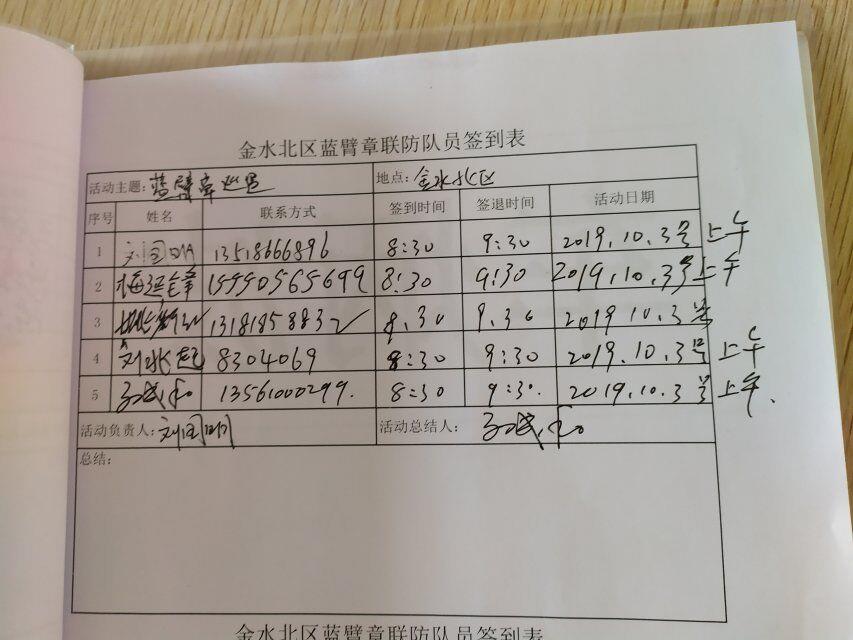 金水北区蓝臂章联防队员签到表
活动主题: 蓝臂章巡逻 地点: 金水北区
序号 姓名 联系方式 签到时间 签退时间 活动日期
1 刘国明 13518666896 8:30 9:30 2019.10.3号 上午
2 15550565699 8:30 9:30 2019.10.3号 上午
3 8.30 9.30 2019 10.3号
4 刘兆起 8304069 8:30 9:30 2019.10.3号 上午
5 13561000299. 8:30 9:30. 2019.10.3号 上午.
活动负责人: 刘国明 活动总结人:
总结:
金水北区蓝臂章联防队员签到表